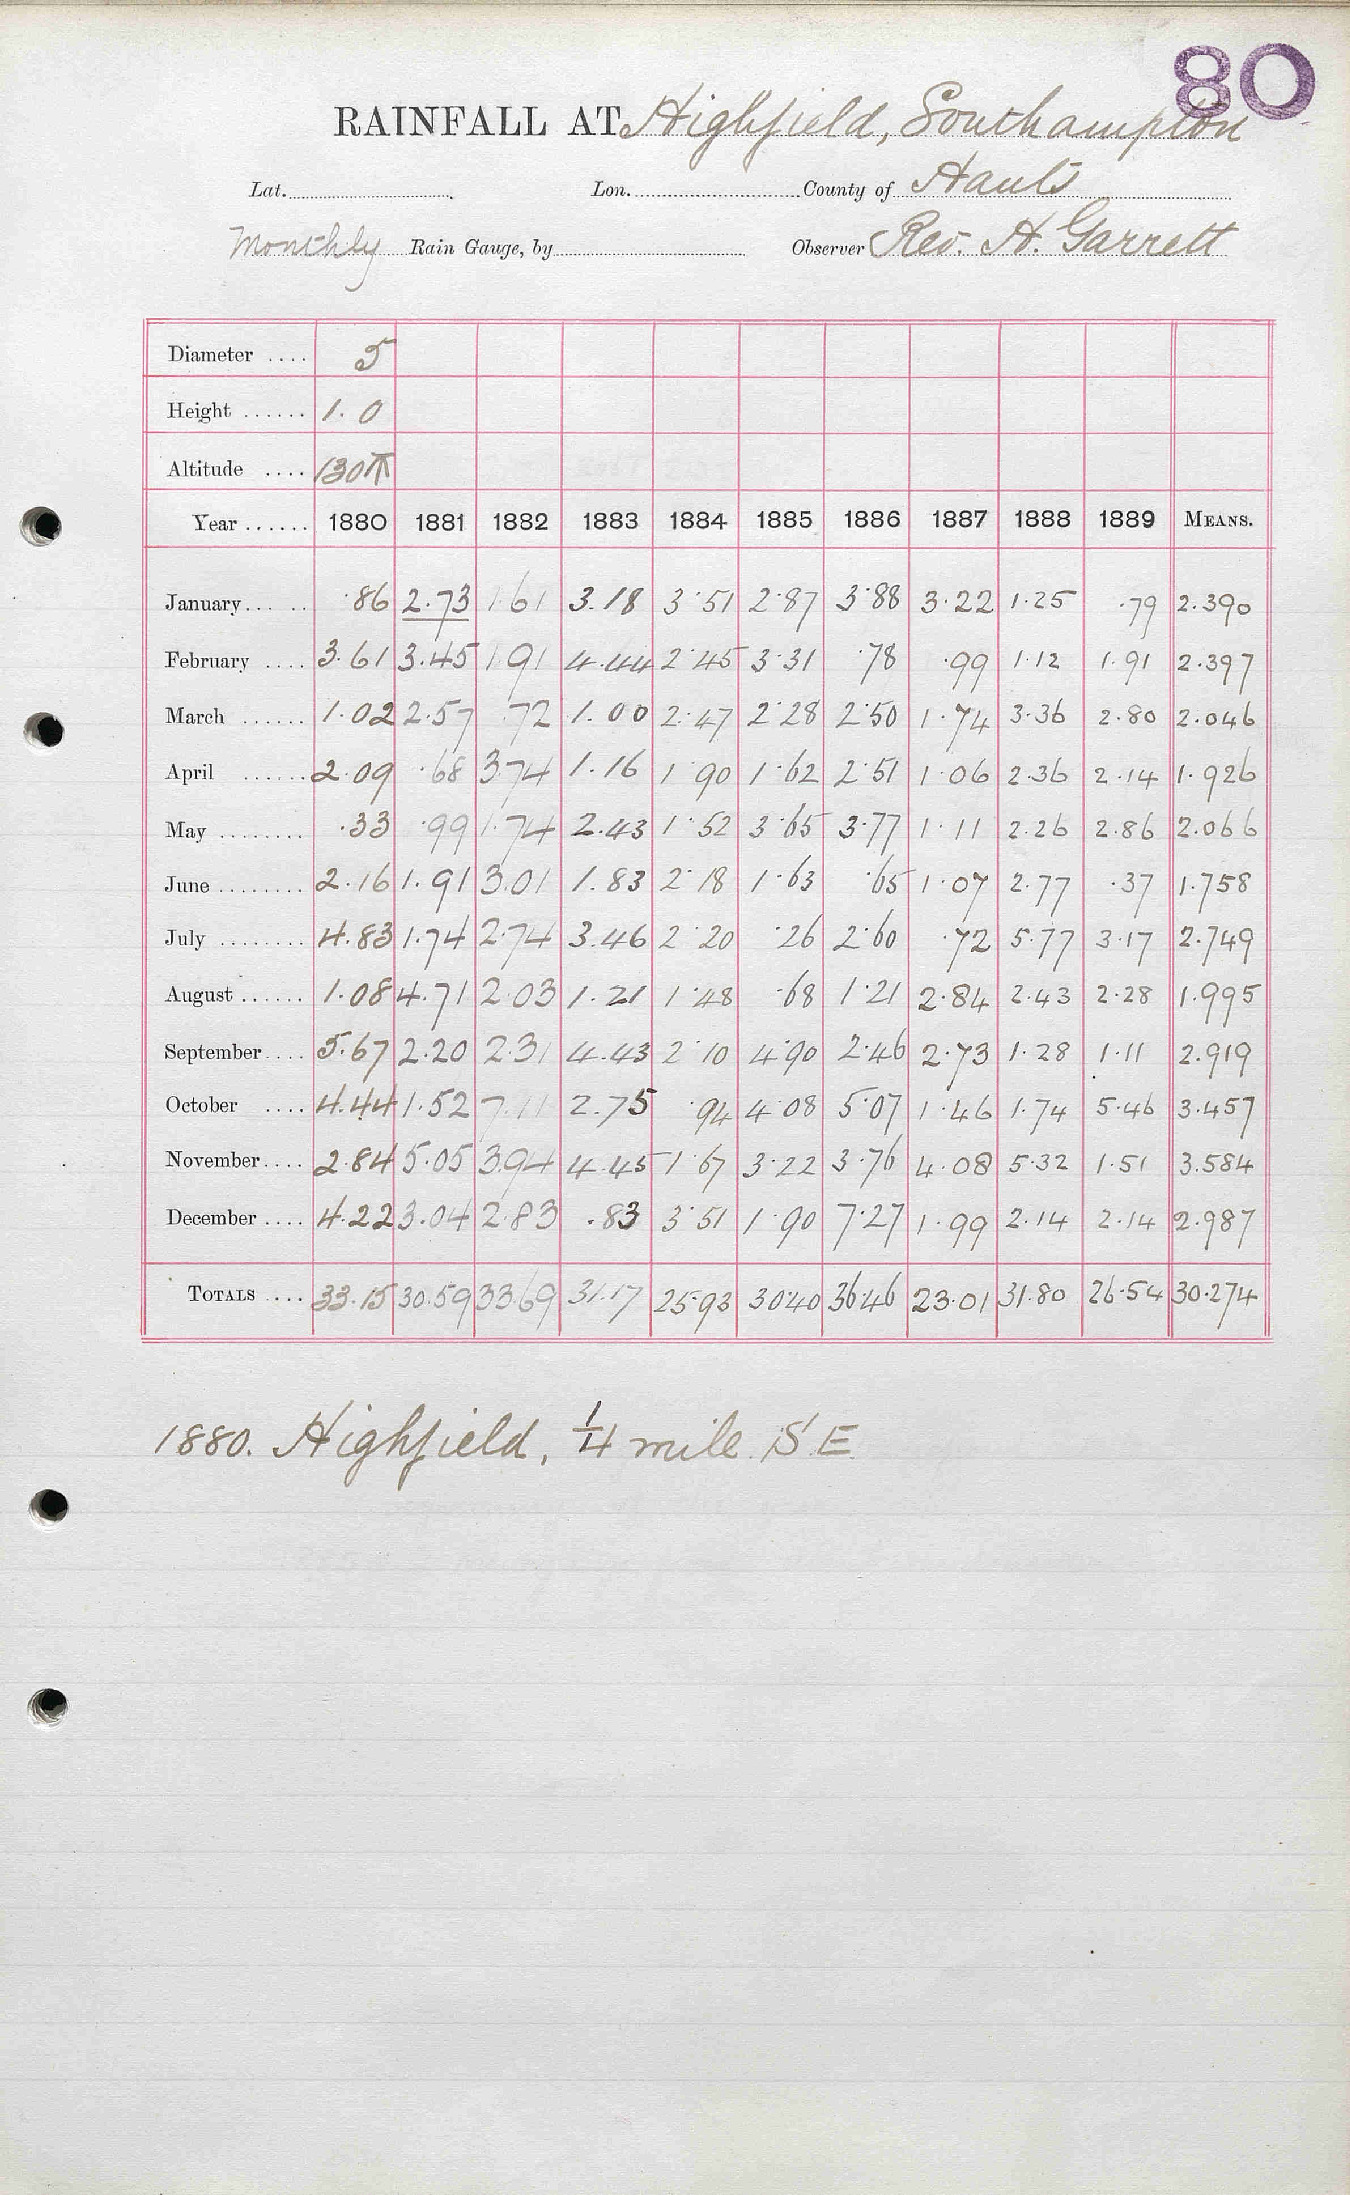 80
RAINFALL AT Highfield, Southampton
Lat. Lon. County of Hants
Monthly Rain Gauge, by Observer Rev. H. Garrett
Diameter .... 5
Height ...... 1.0
Altitude .... 130
Year ...... 1880 1881 1882 1883 1884 1885 1886 1887 1888 1889 MEANS.
January ...... .86 2.73 1.61 3.18 3.51 2.87 3.88 3.22 1.25 .79 2.390
February .... 3.61 3.45 1.91 4.44 2.45 3.31 .78 .99 1.12 1.91 2.397
March ...... 1.02 2.57 .72 1.00 2.47 2.28 2.50 1.74 3.36 2.80 2.046
April ...... 2.09 .68 3.74 1.16 1.90 1.62 2.51 1.06 2.36 2.14 1.926
May ........ .33 .99 1.74 2.43 1.52 3.65 3.77 1.11 2.26 2.86 2.066
June ........ 2.16 1.91 3.01 1.83 2.18 1.63 .65 1.07 2.77 .37 1.758
July ........ 4.83 1.74 2.74 3.46 2.20 .26 2.60 .72 5.77 3.17 2.749
August ...... 1.08 4.71 2.03 1.21 1.48 .68 1.21 2.84 2.43 2.28 1.995
September .... 5.67 2.20 2.31 4.43 2.10 4.90 2.46 2.73 1.28 1.11 2.919
October .... 4.44 1.52 7.11 2.75 .94 4.08 5.07 1.46 1.74 5.46 3.457
November .... 2.84 5.05 3.94 4.45 1.67 3.22 3.76 4.08 5.32 1.51 3.584
December .... 4.22 3.04 2.83 .83 3.51 1.90 7.27 1.99 2.14 2.14 2.987
TOTALS .... 33.15 30.59 33.69 31.17 25.93 30.40 36.46 23.01 31.80 26.54 30.274
1880. Highfield, 1/4 mile S.E.